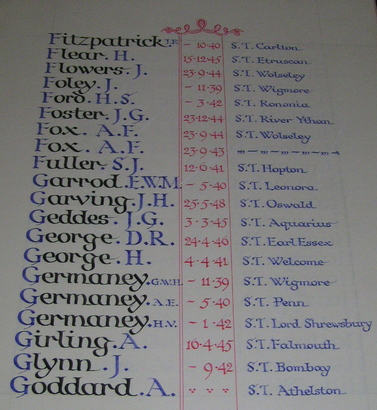 Fitzpatrick J.F. - 10·40 S.T. Carlton
Flear. H. 15·12·45 S.T. Etruscan
Flowers. J. 23·9·44 S.T. Wolseley
Foley. J. - 11·39 S.T. Wigmore
Ford. H.S. - 3·42 S.T. Rononia
Foster. J.G. 23·12·44 S.T. River Ythan
Fox. A.F. 23·9·44 S.T. Wolseley
Fox. A.F. 23·9·43
Fuller. S.J. 12·6·41 S.T. Hopton
Garrod. E.W.M. - 5·40 S.T. Leonora
Garving. J.H. 25·5·48 S.T. Oswald
Geddes. J.G. 3·3·45 S.T. Aquarius
George. D.R. 24·4·46 S.T. Earl Essex
George. H. 4·4·41 S.T. Welcome
Germaney. G.W.H. - 11·39 S.T. Wigmore
Germaney. A.E. - 5·40 S.T. Penn
Germaney. H.V. - 1·42 S.T. Lord Shrewsbury
Girling. A. 10·4·45 S.T. Falmouth
Glynn. J. - 9·42 S.T. Bombay
Goddard. A. S.T. Athelston